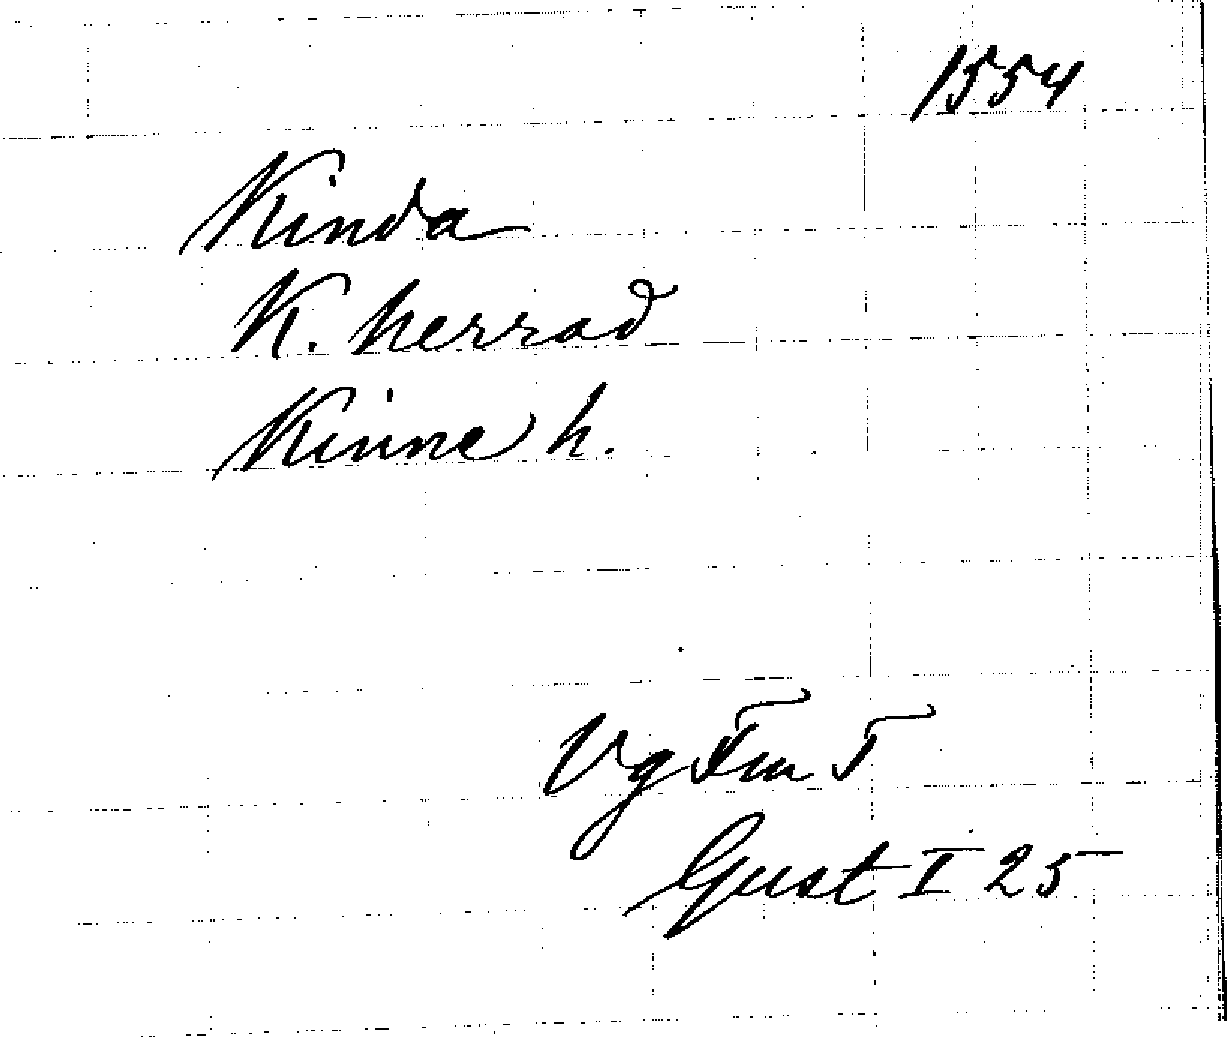 1554
Kinda
K. herrad
Kinne h.
Vg Fm T
Gust I 25